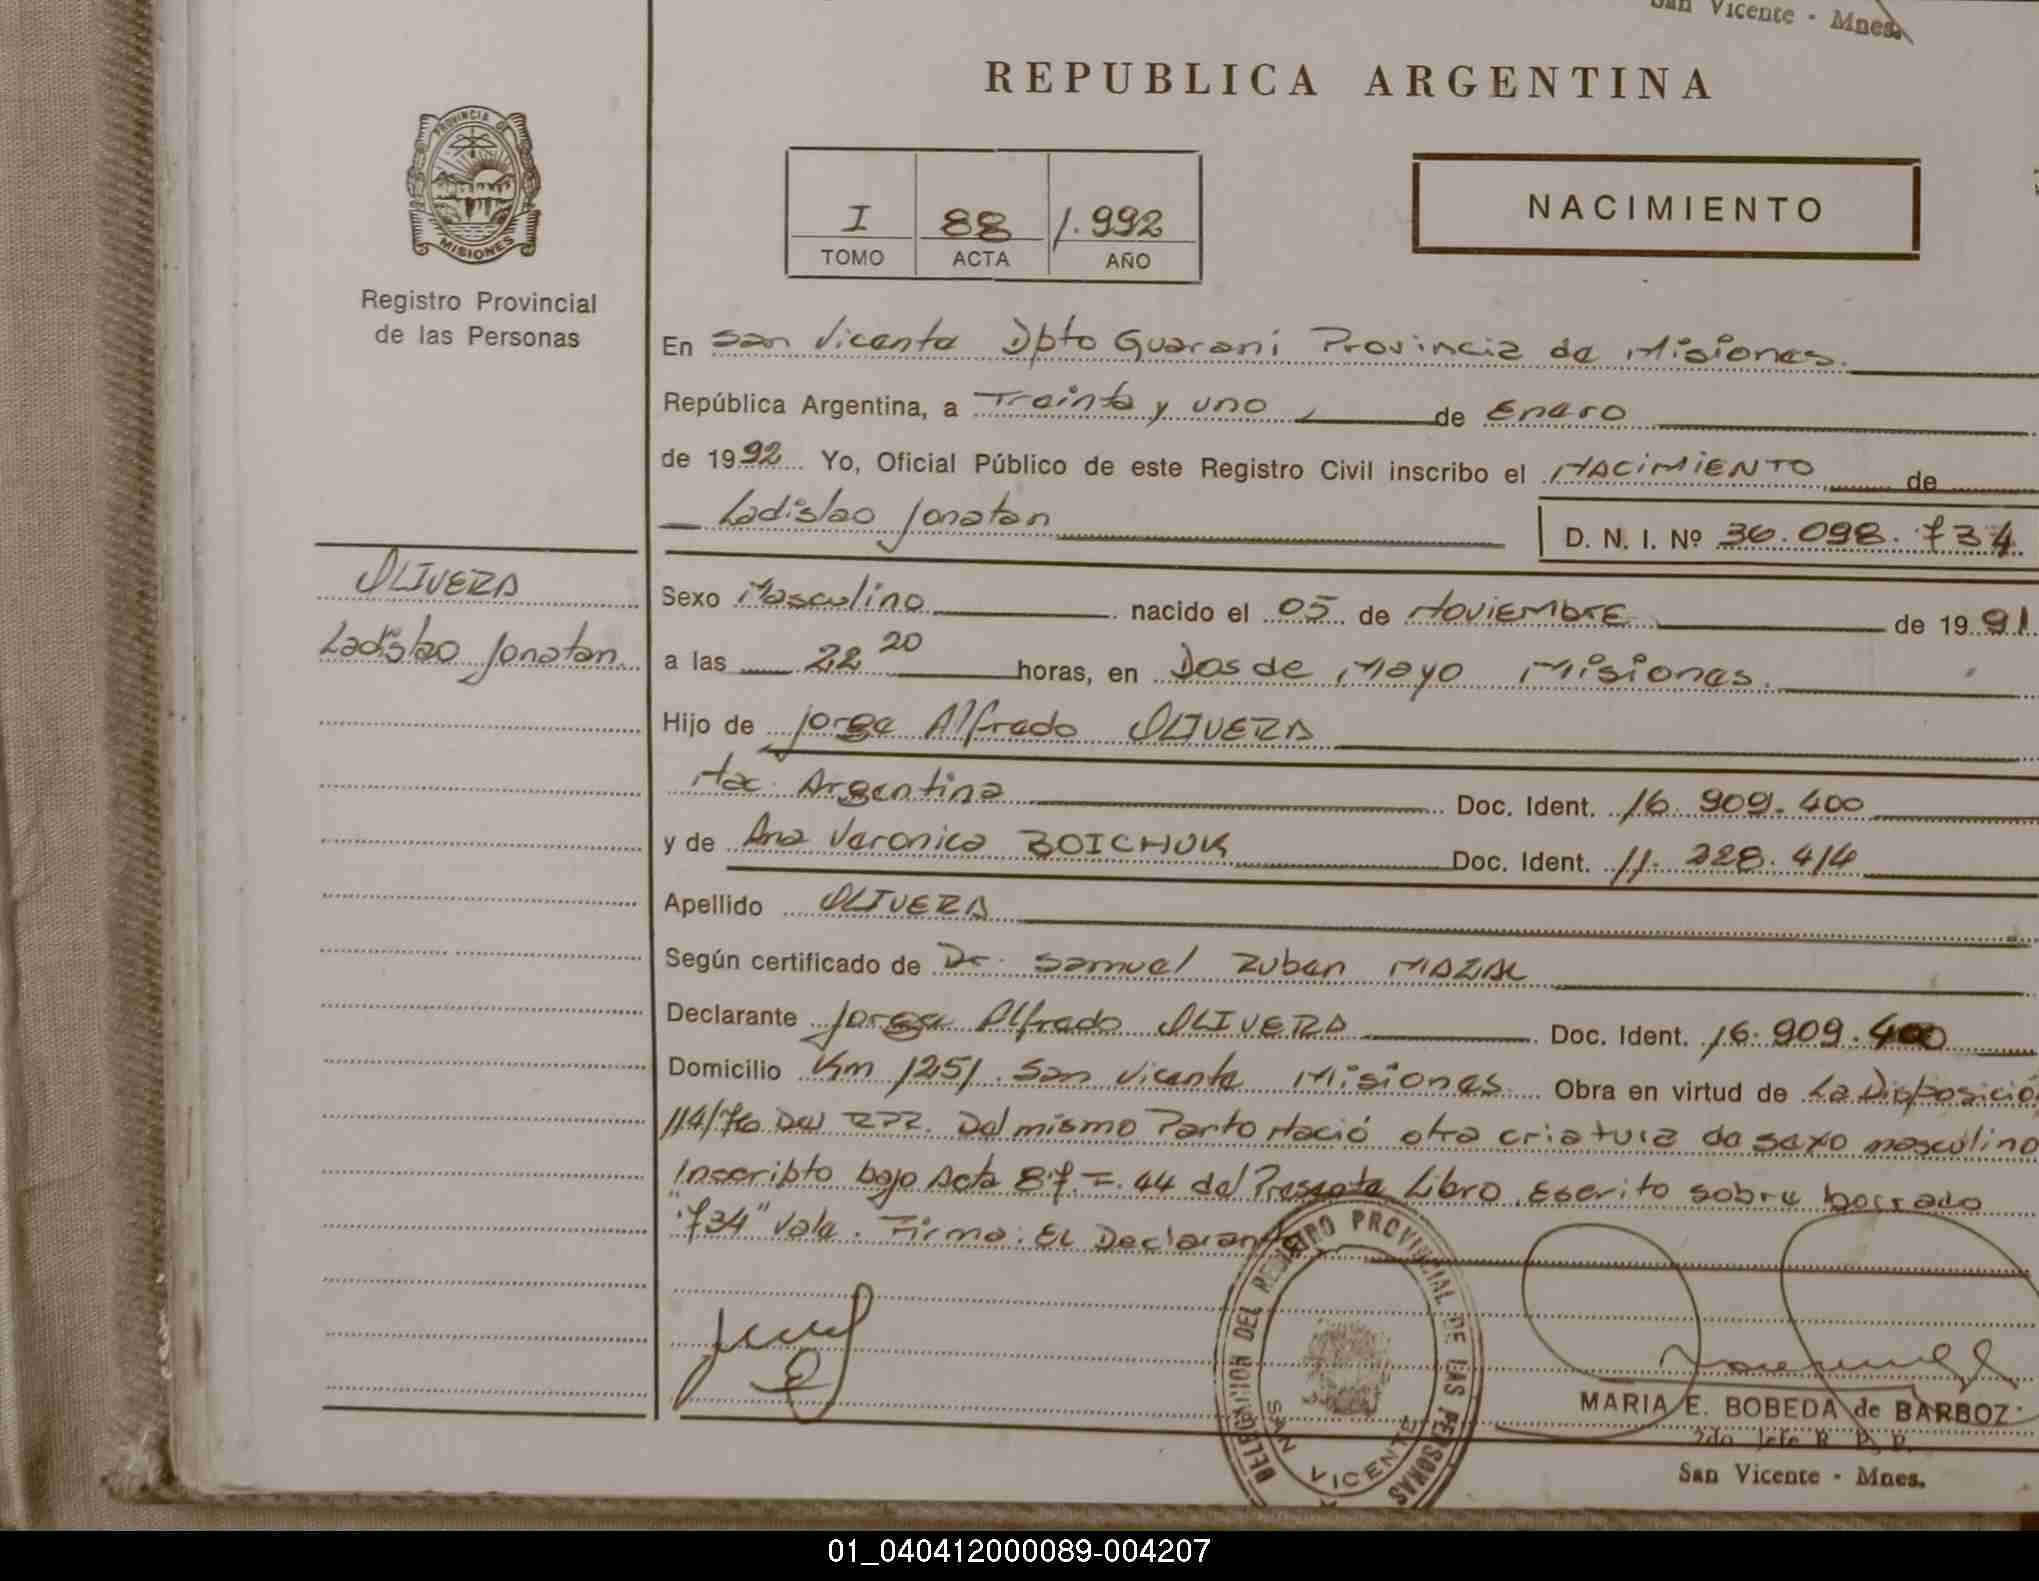 San Vicente - Mnes.
REPUBLICA ARGENTINA
PROVINCIA DE
MISIONES
I 88 1.992
TOMO ACTA AÑO
NACIMIENTO
Registro Provincial
de las Personas
En San Vicente Dpto Guaraní Provincia de Misiones.
República Argentina, a Treinta y uno de Enero
de 1992 Yo, Oficial Público de este Registro Civil inscribo el NACIMIENTO de
Ladislao Jonatan
D. N. I. Nº 36.098.734
OLIVERA
Ladislao Jonatan
Sexo Masculino nacido el 05 de NOVIEMBRE de 1991
a las 22 20 horas, en Dos de Mayo Misiones.
Hijo de Jorge Alfredo OLIVERA
Nac. Argentina Doc. Ident. 16.909.400
y de Ana Veronica BOICHUK Doc. Ident. 11.228.414
Apellido OLIVERA
Según certificado de Dr. Samuel Ruben MAZAL
Declarante Jorge Alfredo OLIVERA Doc. Ident. 16.909.400
Domicilio Km 1251. San Vicente Misiones. Obra en virtud de La Disposició
114/76 Del RPP. Del mismo Parto Nació otra criatura de sexo masculino
Inscripto bajo Acta 87. F. 44 del Presente Libro. Escrito sobre borrado
"734" Vale. Firma: EL Declarante
DELEGACION DEL REGISTRO PROVINCIAL DE LAS PERSONAS
SAN VICENTE
MARIA E. BOBEDA de BARBOZ
2do. Jefe R. P. P.
San Vicente - Mnes.
01_040412000089-004207